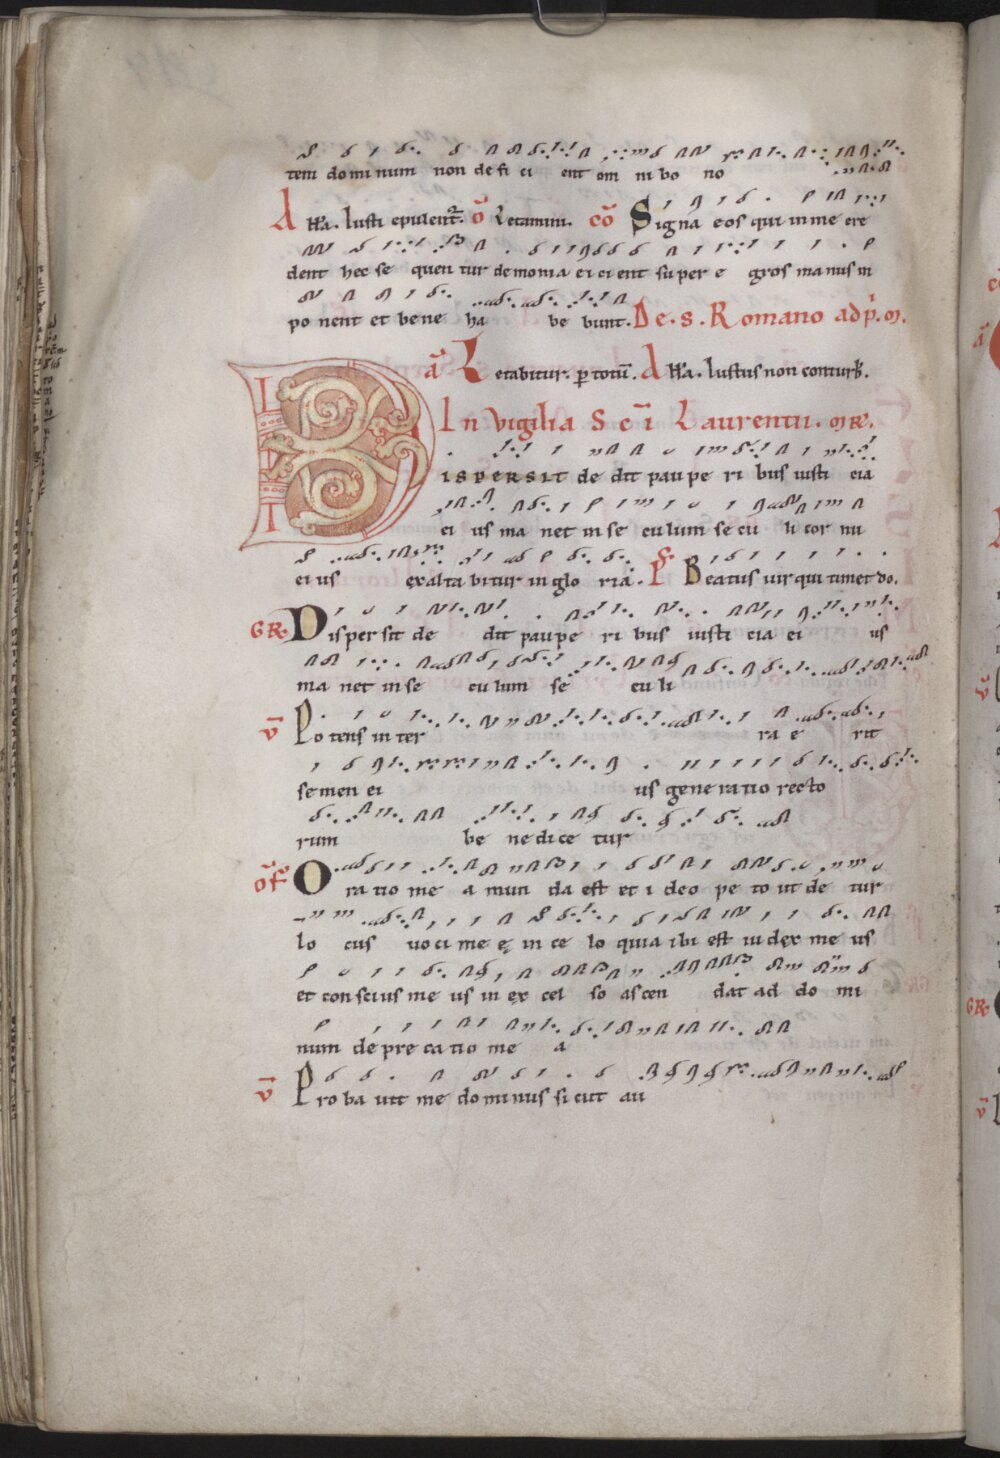 tem dominum non defi ci ent om ni bo no
All'a. Iusti epulent~. Oƒ Letamini. CŌ Signa eos qui in me cre
dent hec se quen tur demonia ei ci ent super e gros manus in
po nent et bene ha be bunt. De. s. Romano ad p'. m.
ā Letabitur. p totū. All'a. Iustus non conturb.
In vigilia Sci Laurentii. mr.
DISPERSIT de dit paupe ri bus iusti cia
ei us ma net in se culum se cu li cor nu
ei us exalta bitur in glo ria. P Beatus uir qui timet do.
GR Dispersit de dit paupe ri bus iusti cia ei us
ma net in se culum se culi
v Potens in ter ra e rit
semen ei us gene ratio recto
rum be ne dice tur
of O ra tio me a mun da est et i deo pe to ut de tur
lo cus uoci me ę in ce lo quia ibi est iudex me us
et conscius me us in ex cel so ascen dat ad do mi
num depre catio me a
v Probauit me dominus sicut au